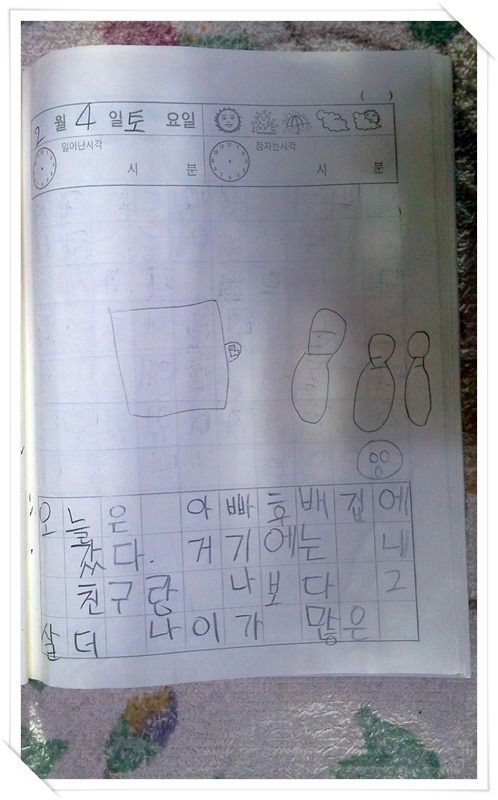 ( )
2월 4일 토요일
일어난시각 잠자는시각
시 분 시 분
오늘은 아빠후배집에
갔다. 거기에는 내
친구랑 나보다 2
살더 나이가 많은